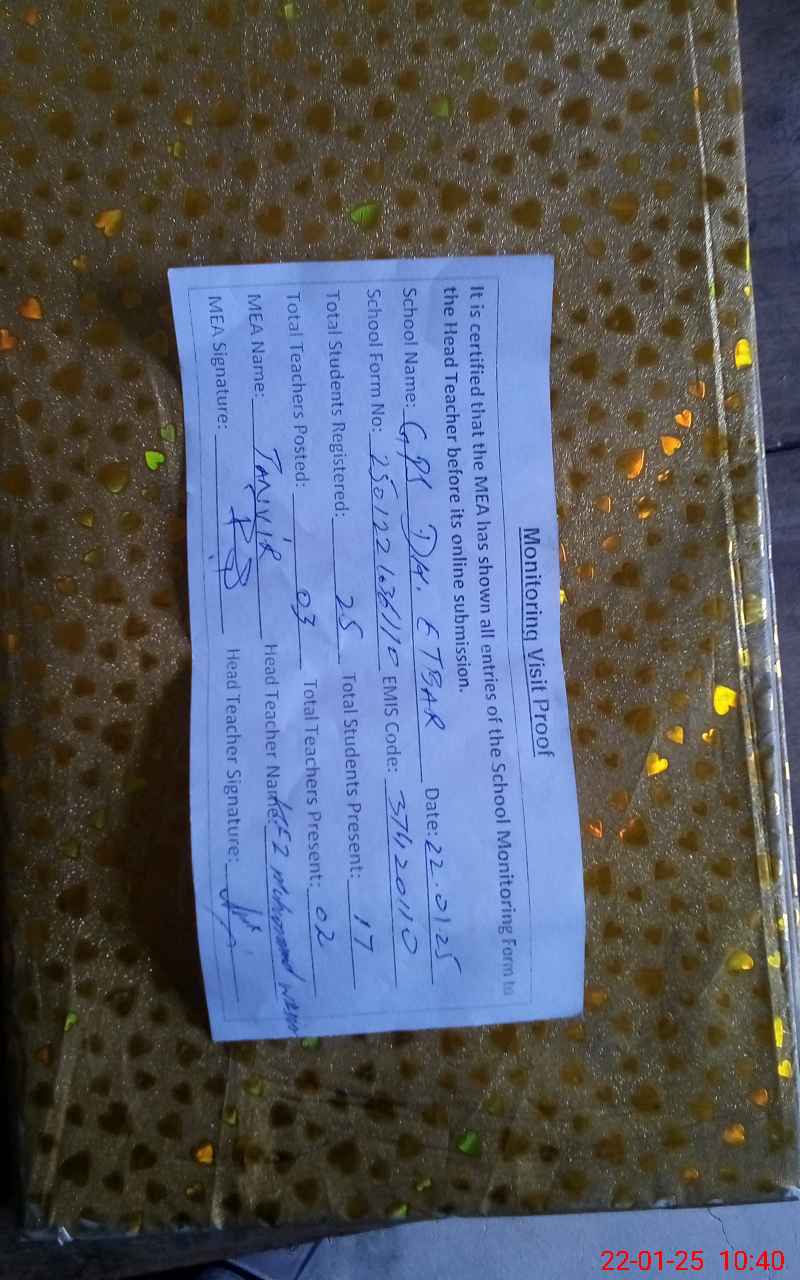 Monitoring Visit Proof
It is certified that the MEA has shown all entries of the School Monitoring Form to
the Head Teacher before its online submission.
School Name: GPS DH. ETBAR Date: 22.01.25
School Form No: EMIS Code: 37420110
Total Students Registered: 25 Total Students Present: 17
Total Teachers Posted: 03 Total Teachers Present: 02
MEA Name: TANVIR Head Teacher Name:
MEA Signature: Head Teacher Signature:
22-01-25 10:40